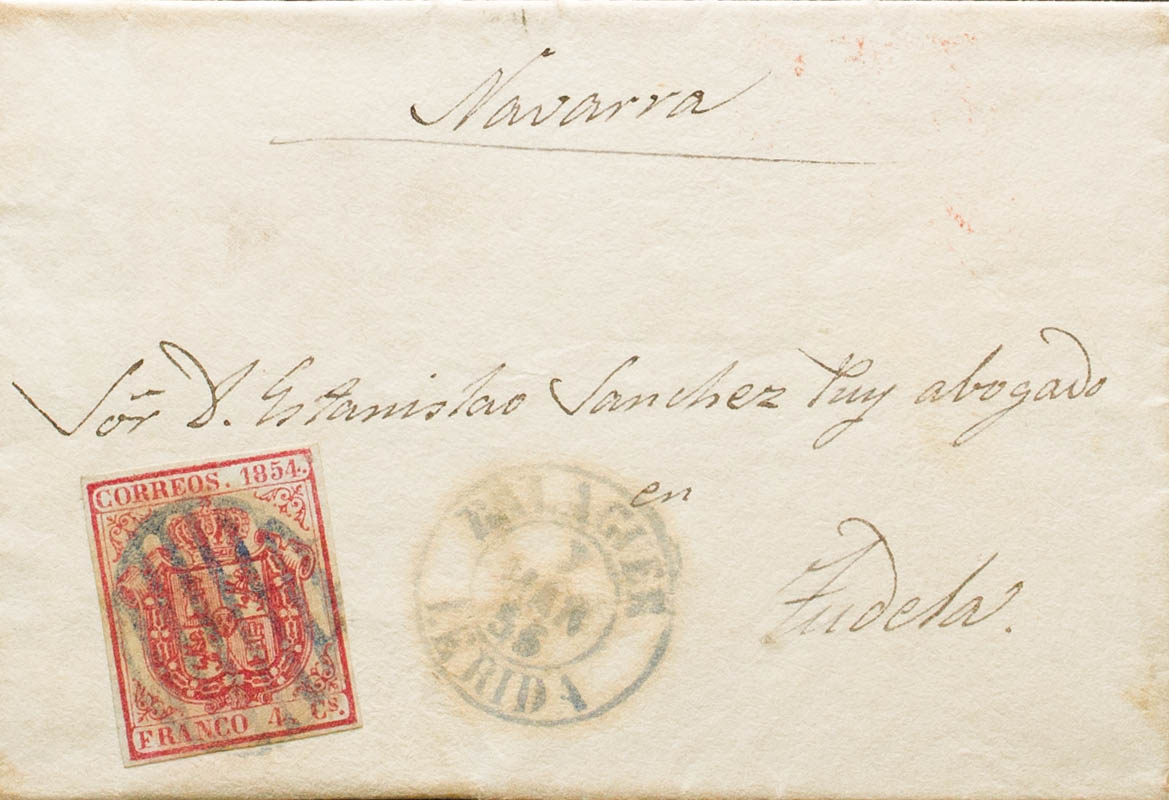 Navarra
Sor D. Estanislao Sanchez Puy abogado
en
Tudela.
CORREOS. 1854.
FRANCO 4 Cs.
BALAGUER
7
MAR
56
LERIDA